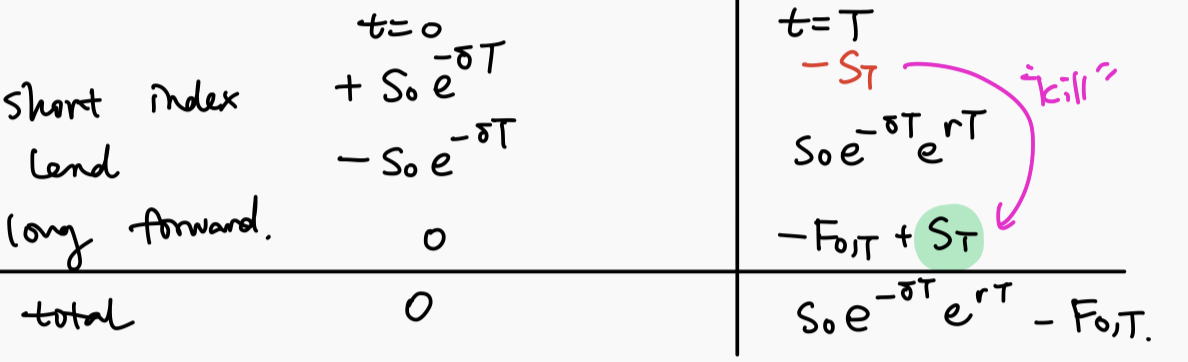 t=0 t=T
short index + S₀e^{-δT} - S_T "kill"
lend - S₀e^{-δT} S₀e^{-δT}e^{rT}
long forward. 0 - F_{0,T} + S_T
total 0 S₀e^{-δT}e^{rT} - F_{0,T}.